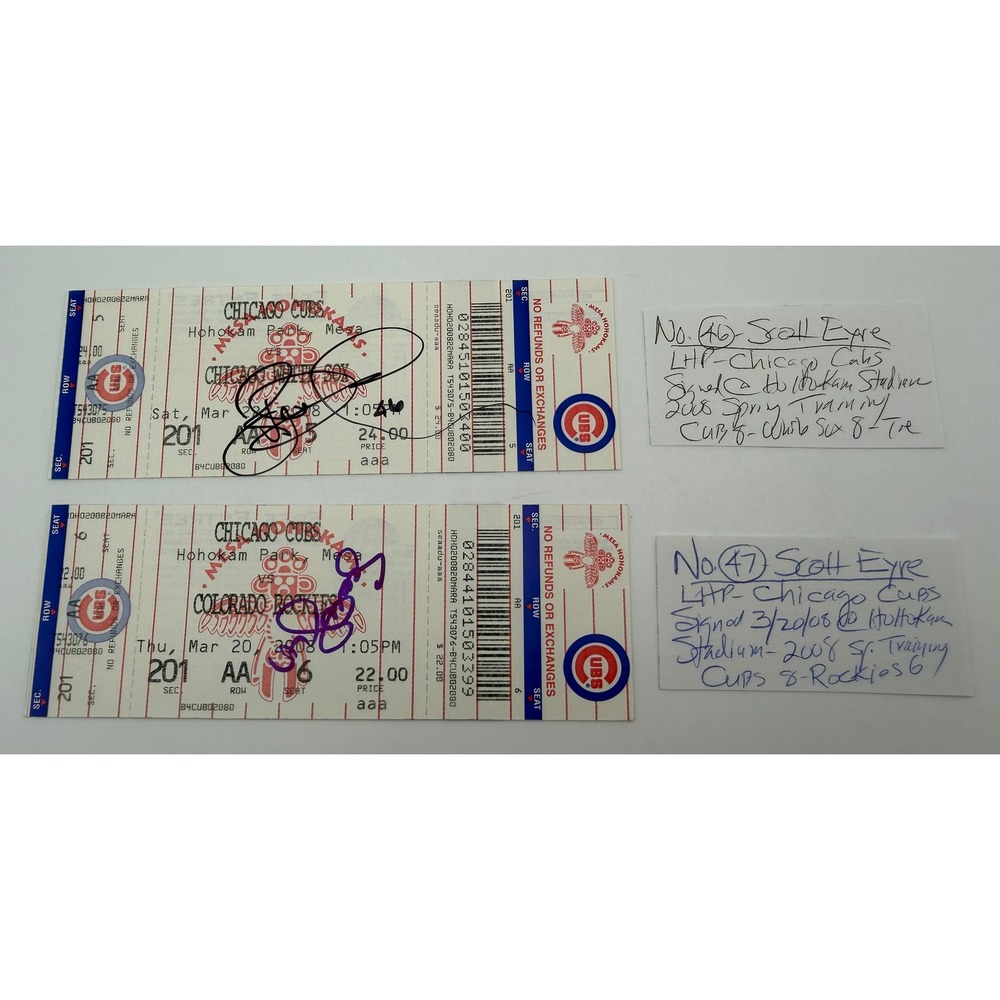 CHICAGO CUBS
Hohokam Park, Mesa
vs
CHICAGO WHITE SOX
Sat, Mar 1:05
201 AA 5 24.00
SEC. ROW PRICE
B4CUB02080 aaa
46
MESA HOHOKAMS
SEAT
ROW
SEC.
H0H0200822MARA
5
SEAT
24.00
AA
NO REFUNDS OR EXCHANGES
TS43075
B4CUB02080
201
SEC.
CUBS
seaadu-aaa
$ 24.00
H0H0200822MARA TS43075-B4CUB02080
0284510150400
201
AA
5
SEC.
ROW
SEAT
NO REFUNDS OR EXCHANGES
MESA HOHOKAMS
CUBS
No. 46 - Scott Eyre
LHP - Chicago Cubs
Signed @ HoHoKam Stadium
2008 Spring Training
CUBS 8 - White Sox 8 - tie
CHICAGO CUBS
Hohokam Park, Mesa
vs
COLORADO ROCKIES
Thu, Mar 20, 2008 1:05PM
201 AA 6 22.00
SEC. ROW SEAT PRICE
B4CUB02080 aaa
MESA HOHOKAMS
SEAT
ROW
SEC.
H0H0200820MARA
6
SEAT
22.00
AA
NO REFUNDS OR EXCHANGES
B4CUB02080
201
SEC.
CUBS
seaadu-aaa
$ 22.00
H0H0200820MARA TS43076-B4CUB02080
02844101503399
201
AA
6
SEC.
ROW
SEAT
NO REFUNDS OR EXCHANGES
MESA HOHOKAMS
CUBS
No. 47 Scott Eyre
LHP - Chicago Cubs
Signed 3/20/08 @ HoHoKam
Stadium - 2008 Sp. Training
CUBS 8 - Rockies 6